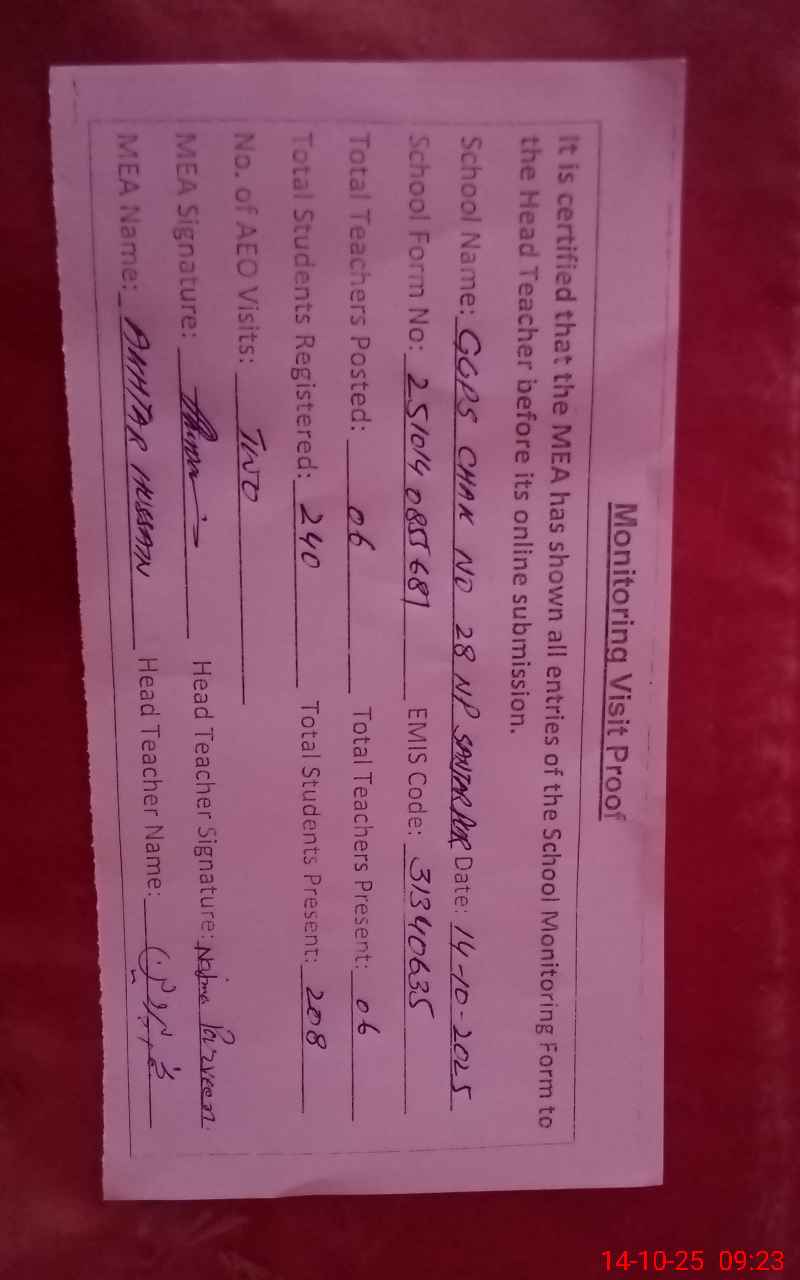 Monitoring Visit Proof
It is certified that the MEA has shown all entries of the School Monitoring Form to
the Head Teacher before its online submission.
School Name: GGPS CHAK NO 28 NP SANJAR PUR Date: 14-10-2025
School Form No: 2510140855681 EMIS Code: 31340635
Total Teachers Posted: 06 Total Teachers Present: 06
Total Students Registered: 240 Total Students Present: 208
No. of AEO Visits: TWO
MEA Signature: Head Teacher Signature: Najma Parveen
MEA Name: AKHTAR HUSSAIN Head Teacher Name: نجمہ پروین
14-10-25 09:23